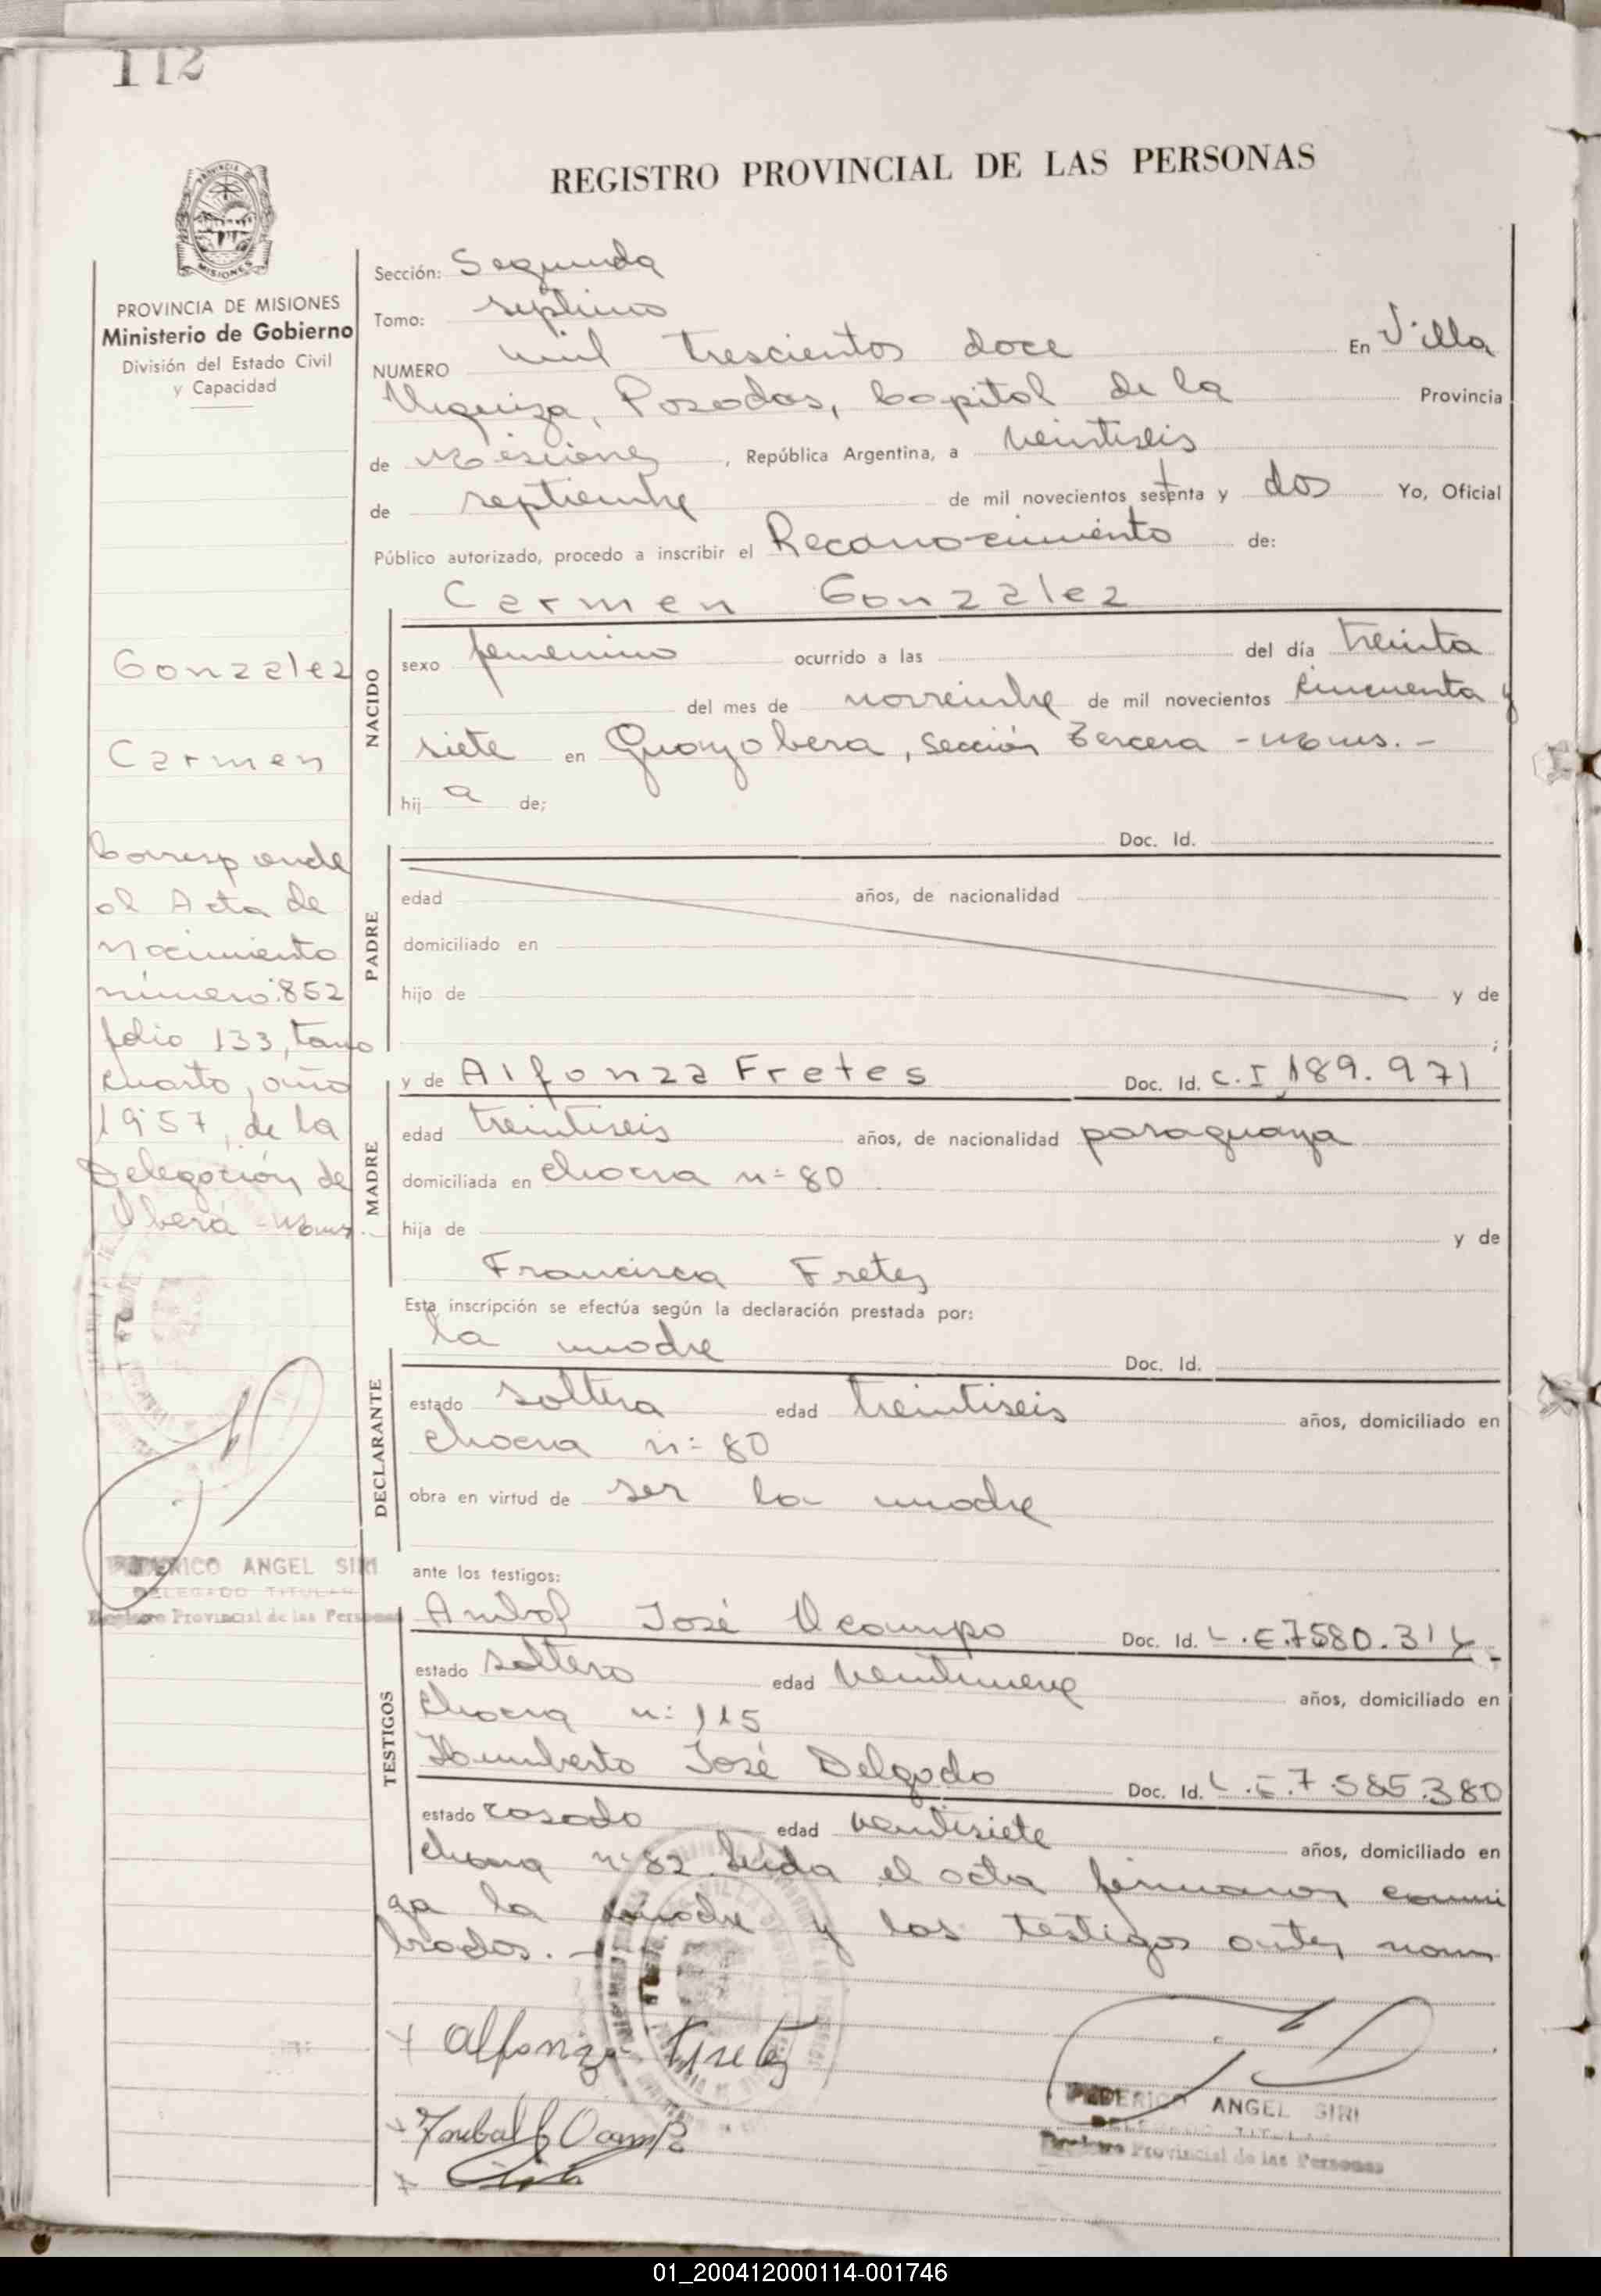 112
REGISTRO PROVINCIAL DE LAS PERSONAS
PROVINCIA DE MISIONES
Ministerio de Gobierno
División del Estado Civil
y Capacidad
Sección: Segunda
Tomo: septimo
NUMERO mil trescientos doce En Villa
Urquiza, Posadas, Capital de la Provincia
de Misiones, República Argentina, a veintiseis
de septiembre de mil novecientos setenta y dos Yo, Oficial
Público autorizado, procedo a inscribir el Reconocimiento de:
Carmen Gonzalez
Gonzalez
Carmen
Corresponde
al Acta de
Nacimiento
número: 852
folio 133, tomo
cuarto, año
1957, de la
Delegación de
Oberá - Mnes.
NACIDO
sexo femenino ocurrido a las del día treinta
del mes de noviembre de mil novecientos cincuenta y
siete en Guayabera, Sección Tercera - Mnes. -
hij a de;
PADRE
Doc. Id.
edad años, de nacionalidad
domiciliado en
hijo de y de
;
MADRE
y de Alfonza Fretes Doc. Id. C.I 189.971
edad treintiseis años, de nacionalidad paraguaya
domiciliada en chacra n= 80
hija de y de
Francisca Fretes
Esta inscripción se efectúa según la declaración prestada por:
la madre Doc. Id.
DECLARANTE
estado soltera edad treintiseis años, domiciliado en
chacra n= 80
obra en virtud de ser la madre
ante los testigos:
FEDERICO ANGEL SIRI
DELEGADO TITULAR
Registro Provincial de las Personas
TESTIGOS
Anibal José Ocampo Doc. Id. L.E.7580.314
estado soltero edad veintinueve años, domiciliado en
chacra n: 115
Humberto José Delgado Doc. Id. L.E.7.585.380
estado casado edad veintisiete años, domiciliado en
chacra n: 82. Leída el acta firmaron conmi
go la madre y los testigos antes nom
brados. -
Alfonza Fretes
FEDERICO ANGEL SIRI
DELEGADO TITULAR
Registro Provincial de las Personas
Anibal J Ocampo
01_200412000114-001746